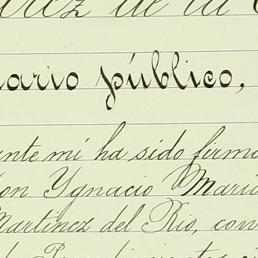 rez de la
ario público,
ante mí ha sido firma
on Ygnacio Maria
Martinez del Rio, con